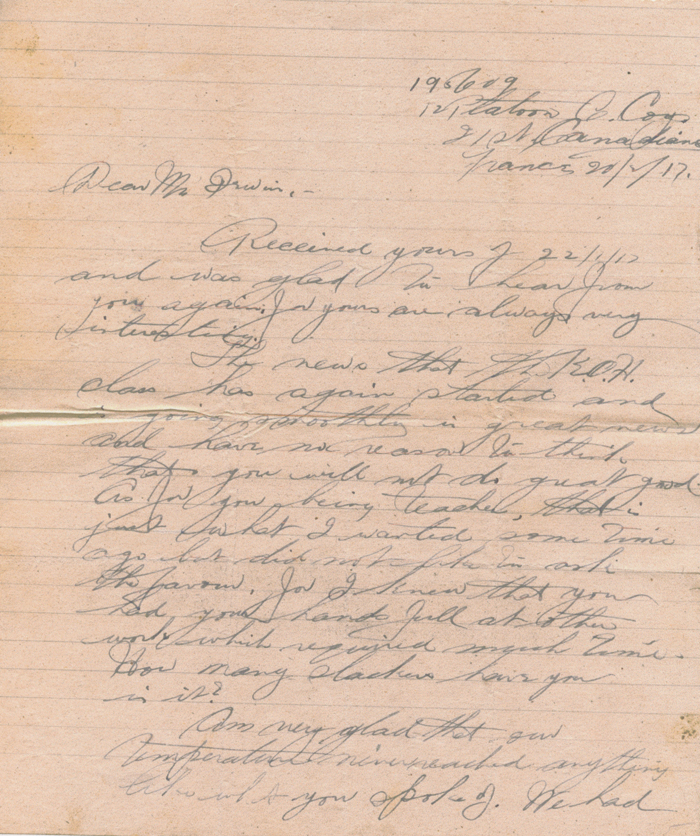 195609
12 Platoon C. Coys
21st Canadians
France 20/2/17.
Dear Mr Irwin,-
Received yours of 22/1/17
and was glad to hear from
you again, for yours are always very
interesting.
The news that the K.O.H.
class has again started and
is going smoothly is great news
and have no reason to think
that you will not do great good.
As for you being teacher, that is
just what I wanted some time
ago but did not like to ask
the favour, for I knew that you
had your hands full at other
work which required much time.
How many slackers have you
in it?
Am very glad that our
temperature never reached anything
like what you spoke of. We had